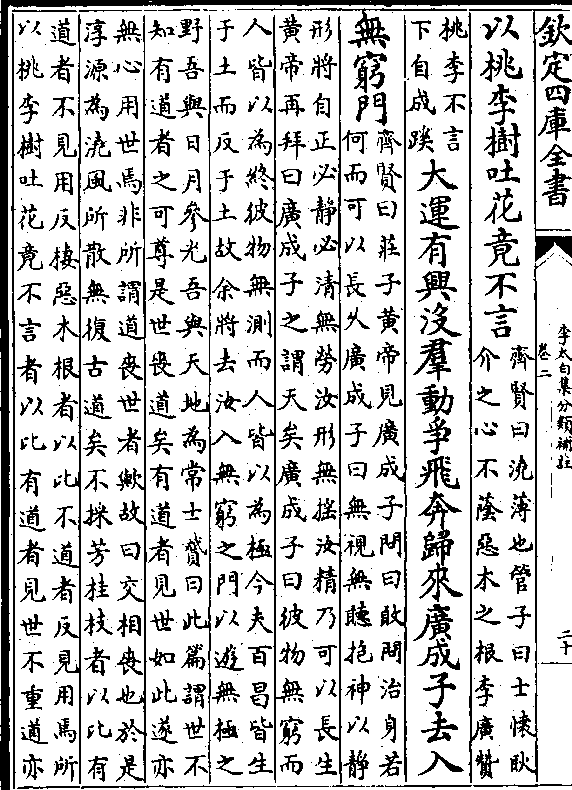 欽定四庫全書
李太白集分類補註
卷二
二十
以桃李樹吐花竟不言
齊賢曰澆薄也管子曰士懷耿
介之心不蔭惡木之根李廣贊
桃李不言
下自成蹊
大運有興沒羣動爭飛奔歸來廣成子去入
無窮門
齊賢曰莊子黃帝見廣成子問曰敢問治身若
何而可以長久廣成子曰無視無聽抱神以靜
形將自正必靜必清無勞汝形無搖汝精乃可以長生
黃帝再拜曰廣成子之謂天矣廣成子曰彼物無窮而
人皆以為終彼物無測而人皆以為極今夫百昌皆生
于土而反于土故余將去汝入無窮之門以遊無極之
野吾與日月參光吾與天地為常士贇曰此篇謂世不
知有道者之可尊是世喪道矣有道者見世如此遂亦
無心用世焉非所謂道喪世者歟故曰交相喪也於是
淳源為澆風所散無復古道矣不採芳桂枝者以比有
道者不見用反棲惡木根者以比不道者反見用焉所
以桃李樹吐花竟不言者以比有道者見世不重道亦